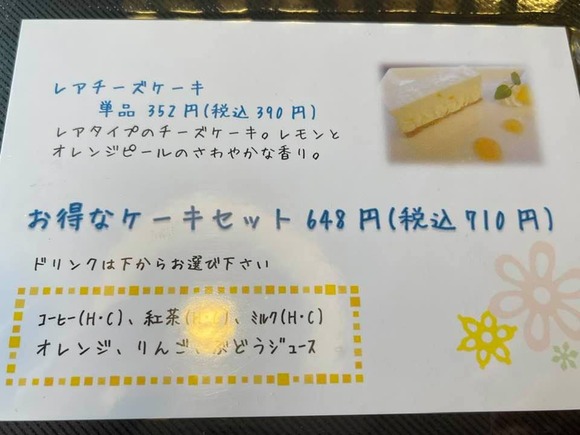 レアチーズケーキ
単品 352円(税込390円)
レアタイプのチーズケーキ。レモンと
オレンジピールのさわやかな香り。
お得なケーキセット 648円(税込710円)
ドリンクは下からお選び下さい
コーヒー(H・C)、紅茶(H・C)、ミルク(H・C)
オレンジ、りんご、ぶどうジュース